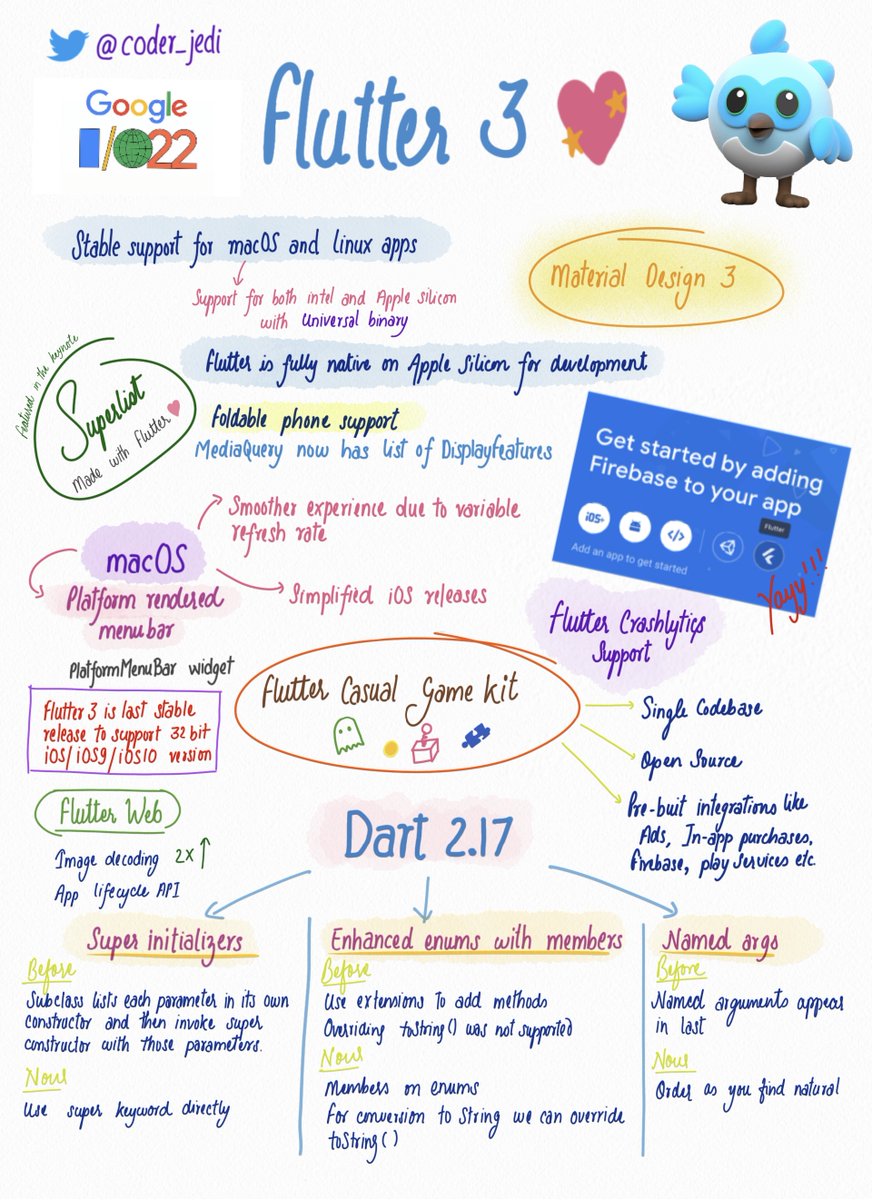 @coder_jedi
Google
I/O22
Flutter 3
Stable support for macOS and linux apps
Support for both intel and Apple silicon
with Universal binary
Material Design 3
Featured in the keynote
Superlist
Made with Flutter
Flutter is fully native on Apple Silicon for development
Foldable phone support
MediaQuery now has list of DisplayFeatures
Get started by adding
Firebase to your app
iOS+
</>
Flutter
Add an app to get started
Yayy!!!
Smoother experience due to variable
refresh rate
macOS
Simplified iOS releases
Platform rendered
menubar
PlatformMenuBar widget
Flutter Crashlytics
Support
Flutter 3 is last stable
release to support 32 bit
iOS/iOS9/iOS10 version
Flutter Casual Game Kit
Single Codebase
Open Source
Pre-buit integrations like
Ads, In-app purchases,
Firebase, play services etc.
Flutter Web
Image decoding 2x ↑
App lifecycle API
Dart 2.17
Super initializers
Before
Subclass lists each parameter in its own
constructor and then invoke super
constructor with those parameters.
Now
Use super keyword directly
Enhanced enums with members
Before
Use extensions to add methods
Overriding toString() was not supported
Now
Members on enums
For conversion to String we can override
toString()
Named args
Before
Named arguments appear
in last
Now
Order as you find natural